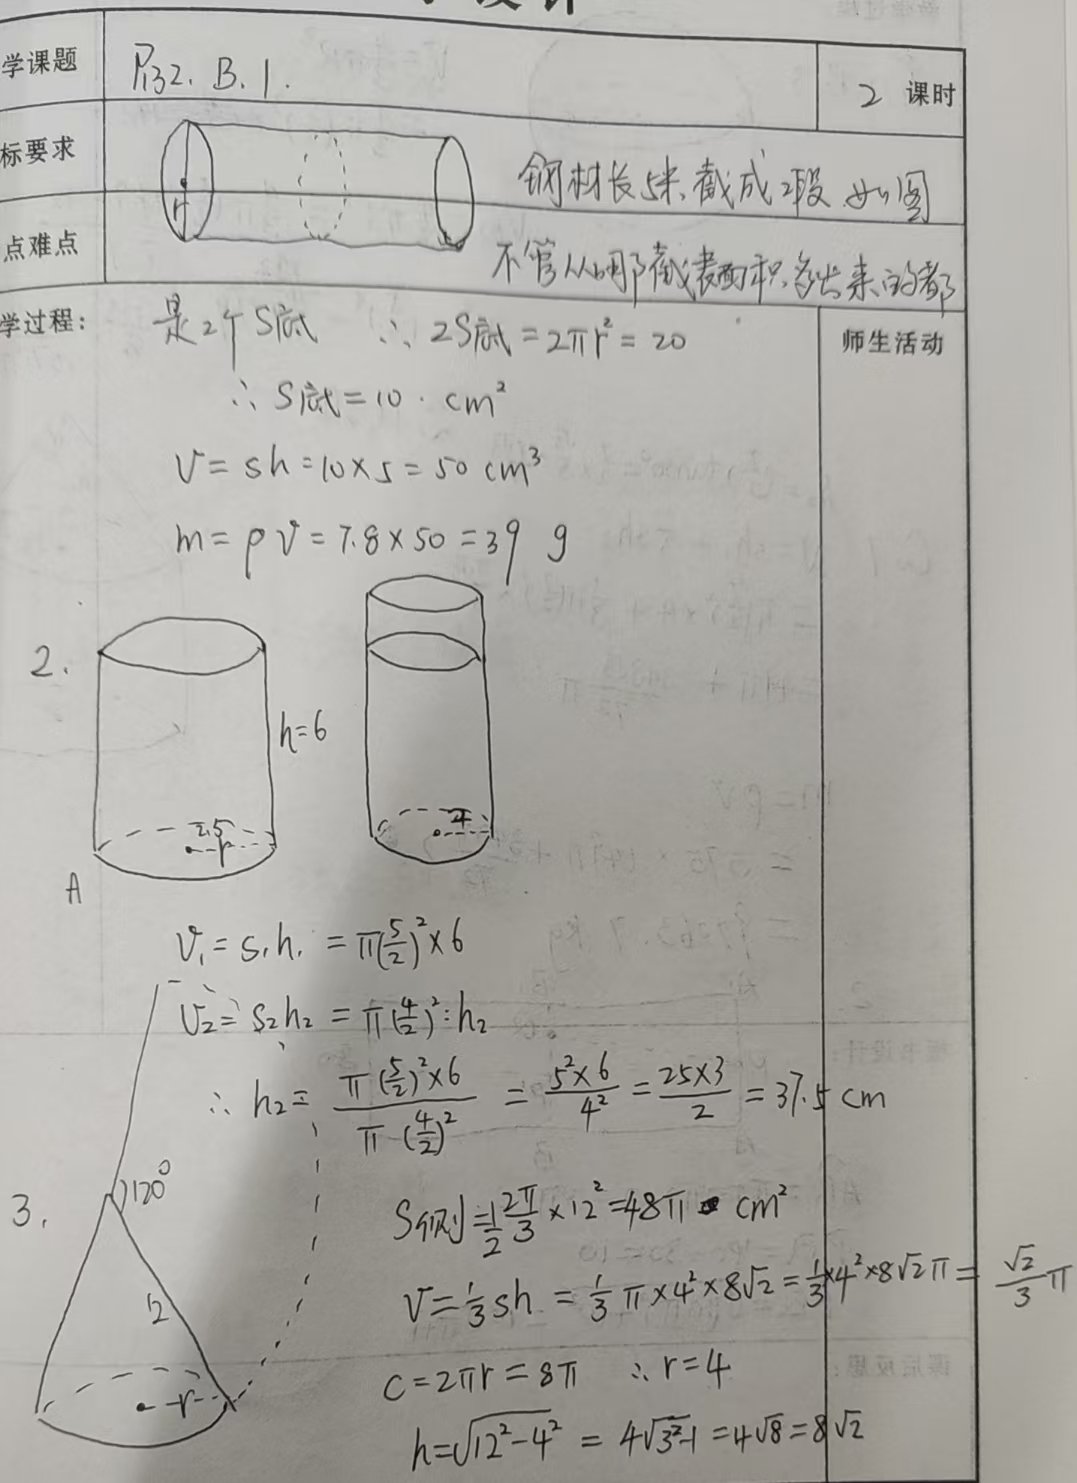 学课题 P132. B. 1. 2 课时
标要求
钢材长5米 截成2段 如图
点难点
不管从哪截表面积多出来的都
学过程: 是2个S底 ∴ 2S底=2πr²=20
师生活动
∴ S底=10 · cm²
V=sh=10×5=50 cm³
m=ρV=7.8×50=39 g
r
2.
h=6
2.5
r
4
A
V₁=S₁h₁=π(5/2)²×6
V₂=S₂h₂=π(4/2)²·h₂
∴ h₂=π(5/2)²×6/π(4/2)²=5²×6/4²=25×3/2=37.5 cm
3.
120°
12
r
S侧=1/2 2π/3×12²=48π cm²
V=1/3sh=1/3π×4²×8√2=1/3×4²×8√2π=√2/3π
C=2πr=8π ∴ r=4
h=√12²-4²=4√3²-1=4√8=8√2